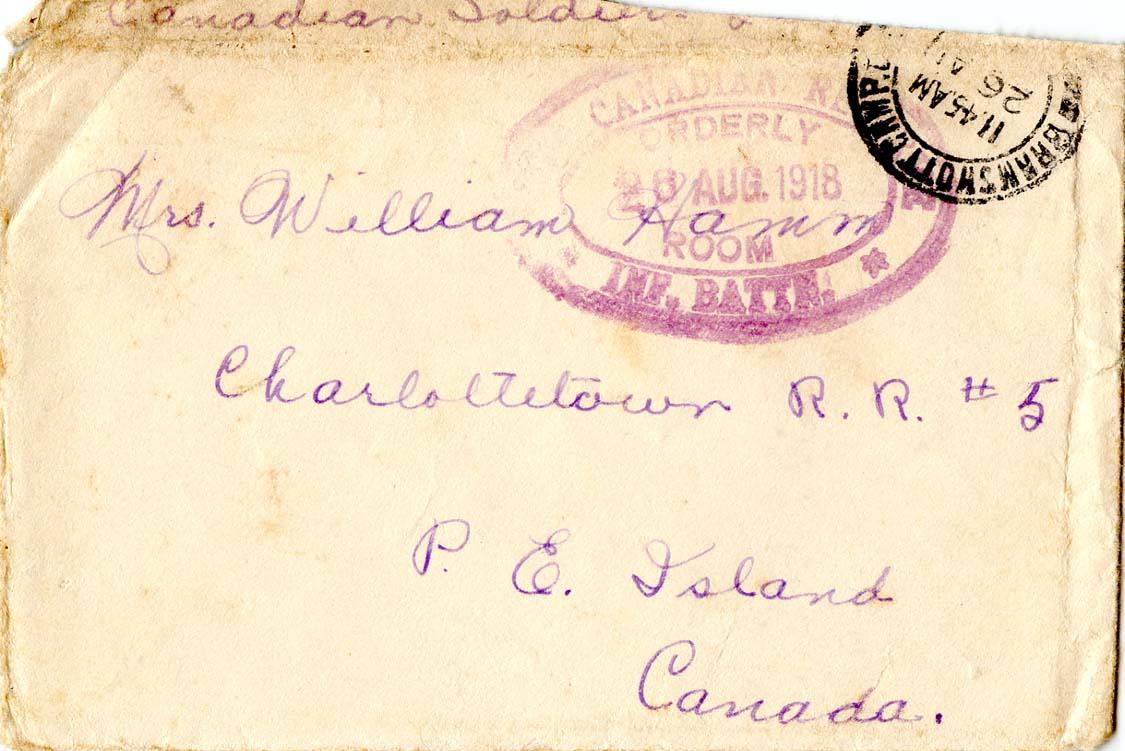 Canadian Soldier
CANADIAN RE
ORDERLY
26 AUG. 1918
ROOM
INF. BATTN.
BRAMSHOTT CAMP.
11.45 AM
26 AU
Mrs. William Hamm
Charlottetown R. R. # 5
P. E. Island
Canada.